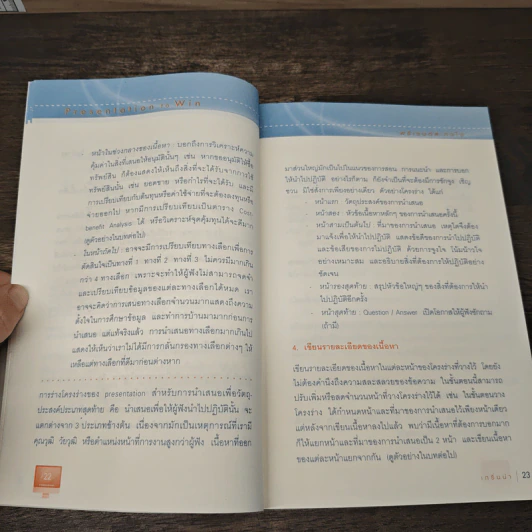 Presentation to Win
- หน้าในช่วงกลางของเนื้อหา : บอกถึงการวิเคราะห์ความ
คุ้มค่าในสิ่งที่เสนอให้อนุมัตินั้นๆ เช่น หากขออนุมัติให้ซื้อ
ทรัพย์สิน ก็ต้องแสดงให้เห็นถึงสิ่งที่จะได้รับจากการได้
ทรัพย์สินนั้น เช่น ยอดขาย หรือกำไรที่จะได้รับ และมี
การเปรียบเทียบกับต้นทุนหรือค่าใช้จ่ายที่จะต้องลงทุนหรือ
จ่ายออกไป หากมีการเปรียบเทียบเป็นตาราง Cost
benefit Analysis ได้ หรือวิเคราะห์จุดคุ้มทุนได้จะดีมาก
(ดูตัวอย่างในบทต่อไป)
- ในหน้าถัดไป : อาจจะมีการเปรียบเทียบทางเลือกเพื่อการ
ตัดสินใจเป็นทางที่ 1 ทางที่ 2 ทางที่ 3 ไม่ควรมีมากเกิน
กว่า 4 ทางเลือก เพราะจะทำให้ผู้ฟังไม่สามารถจดจำ
และเปรียบเทียบข้อมูลของแต่ละทางเลือกได้หมด เรา
อาจจะคิดว่าการเสนอทางเลือกจำนวนมากแสดงถึงความ
ตั้งใจในการศึกษาข้อมูล และทำการบ้านมามากก่อนการ
นำเสนอ แต่แท้จริงแล้ว การนำเสนอทางเลือกมากเกินไป
แสดงให้เห็นว่าเราไม่ได้มีการกลั่นกรองทางเลือกต่างๆ ให้
เหลือแต่ทางเลือกที่ดีมาก่อนต่างหาก
การร่างโครงร่างของ presentation สำหรับการนำเสนอเพื่อวัตถุ-
ประสงค์ประเภทสุดท้าย คือ นำเสนอเพื่อให้ผู้ฟังนำไปปฏิบัตินั้น จะ
แตกต่างจาก 3 ประเภทข้างต้น เนื่องจากมักเป็นเหตุการณ์ที่เรามี
คุณวุฒิ วัยวุฒิ หรือตำแหน่งหน้าที่การงานสูงกว่าผู้ฟัง เนื้อหาที่ออก
22
มาส่วนใหญ่มักเป็นไปในแนวของการสอน การแนะนำ และการบอก
ให้นำไปปฏิบัติ อย่างไรก็ตาม ก็ยังจำเป็นที่จะต้องมีการชักจูง เชิญ
ชวน มิใช่สั่งการเพียงอย่างเดียว ตัวอย่างโครงร่าง ได้แก่
- หน้าแรก : วัตถุประสงค์ของการนำเสนอ
- หน้าสอง : หัวข้อเนื้อหาหลักๆ ของการนำเสนอครั้งนี้
- หน้าสามเป็นต้นไป : ที่มาของการนำเสนอ เหตุใดจึงต้อง
มาแจ้งเพื่อให้นำไปปฏิบัติ แสดงข้อดีของการนำไปปฏิบัติ
และข้อเสียของการไม่ปฏิบัติ ด้วยการจูงใจ โน้มน้าวใจ
อย่างเหมาะสม และอธิบายสิ่งที่ต้องการให้ปฏิบัติอย่าง
ชัดเจน
- หน้ารองสุดท้าย : สรุปหัวข้อใหญ่ๆ ของสิ่งที่ต้องการให้นำ
ไปปฏิบัติอีกครั้ง
- หน้าสุดท้าย : Question / Answer เปิดโอกาสให้ผู้ฟังซักถาม
(ถ้ามี)
4. เขียนรายละเอียดของเนื้อหา
เขียนรายละเอียดของเนื้อหาในแต่ละหน้าของโครงร่างที่วางไว้ โดยยัง
ไม่ต้องคำนึงถึงความสละสลวยของข้อความ ในขั้นตอนนี้สามารถ
ปรับเพิ่มหรือลดจำนวนหน้าที่วางโครงร่างไว้ได้ เช่น ในขั้นตอนวาง
โครงร่าง ได้กำหนดหน้าและที่มาของการนำเสนอไว้เพียงหน้าเดียว
แต่หลังจากเขียนเนื้อหาลงไปแล้ว พบว่ามีเนื้อหาที่ต้องการบอกมาก
ก็ให้แยกหน้าและที่มาของการนำเสนอเป็น 2 หน้า และเขียนเนื้อหา
ของแต่ละหน้าแยกจากกัน (ดูตัวอย่างในบทต่อไป)
23